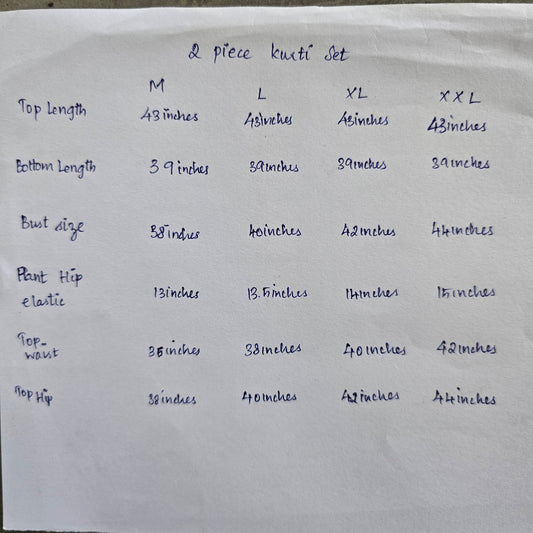 2 piece kurti Set
M L XL XXL
Top Length 43 inches 43inches 43inches 43inches
Bottom Length 39 inches 39inches 39inches 39inches
Bust size 38 inches 40inches 42inches 44inches
Plant Hip
elastic 13inches 13.5inches 14inches 15inches
Top-
waist 36inches 38inches 40inches 42inches
Top Hip 38inches 40inches 42inches 44inches